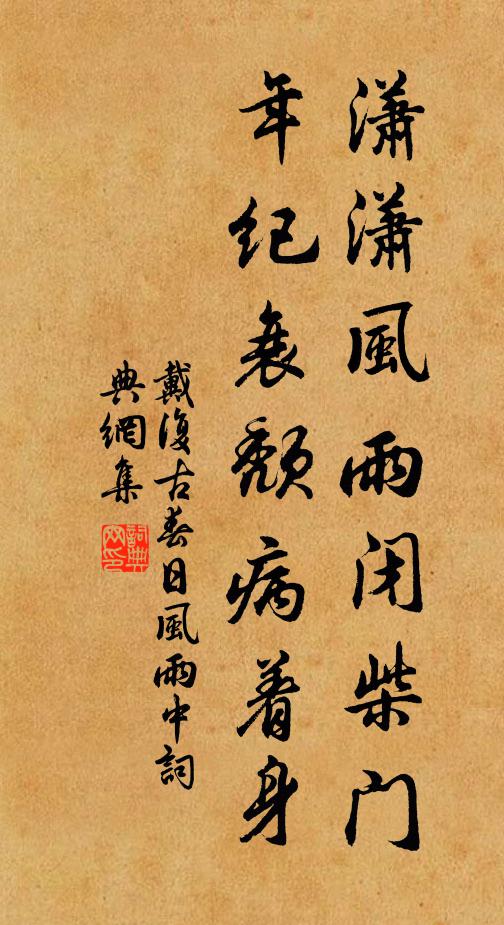 瀟瀟風雨閉柴門
年紀衰頹病着身
戴復古春日風雨中詞
典網集
詞典
网印